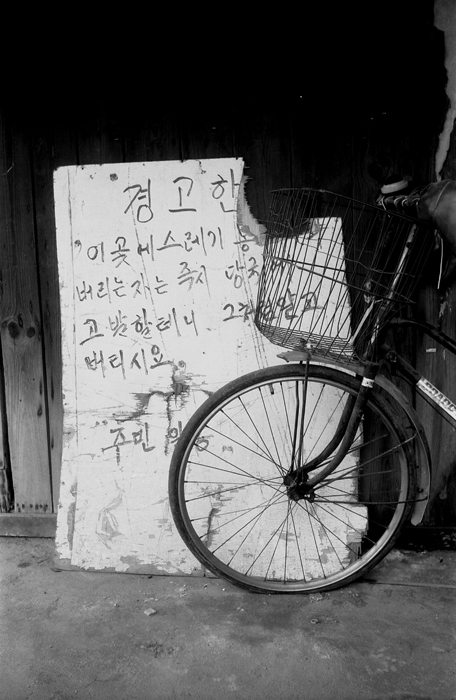 경고한
이곳에 스레기 
버리는자는 즉시 당국
고발할테니 그리알고
버티시오
주민 일동